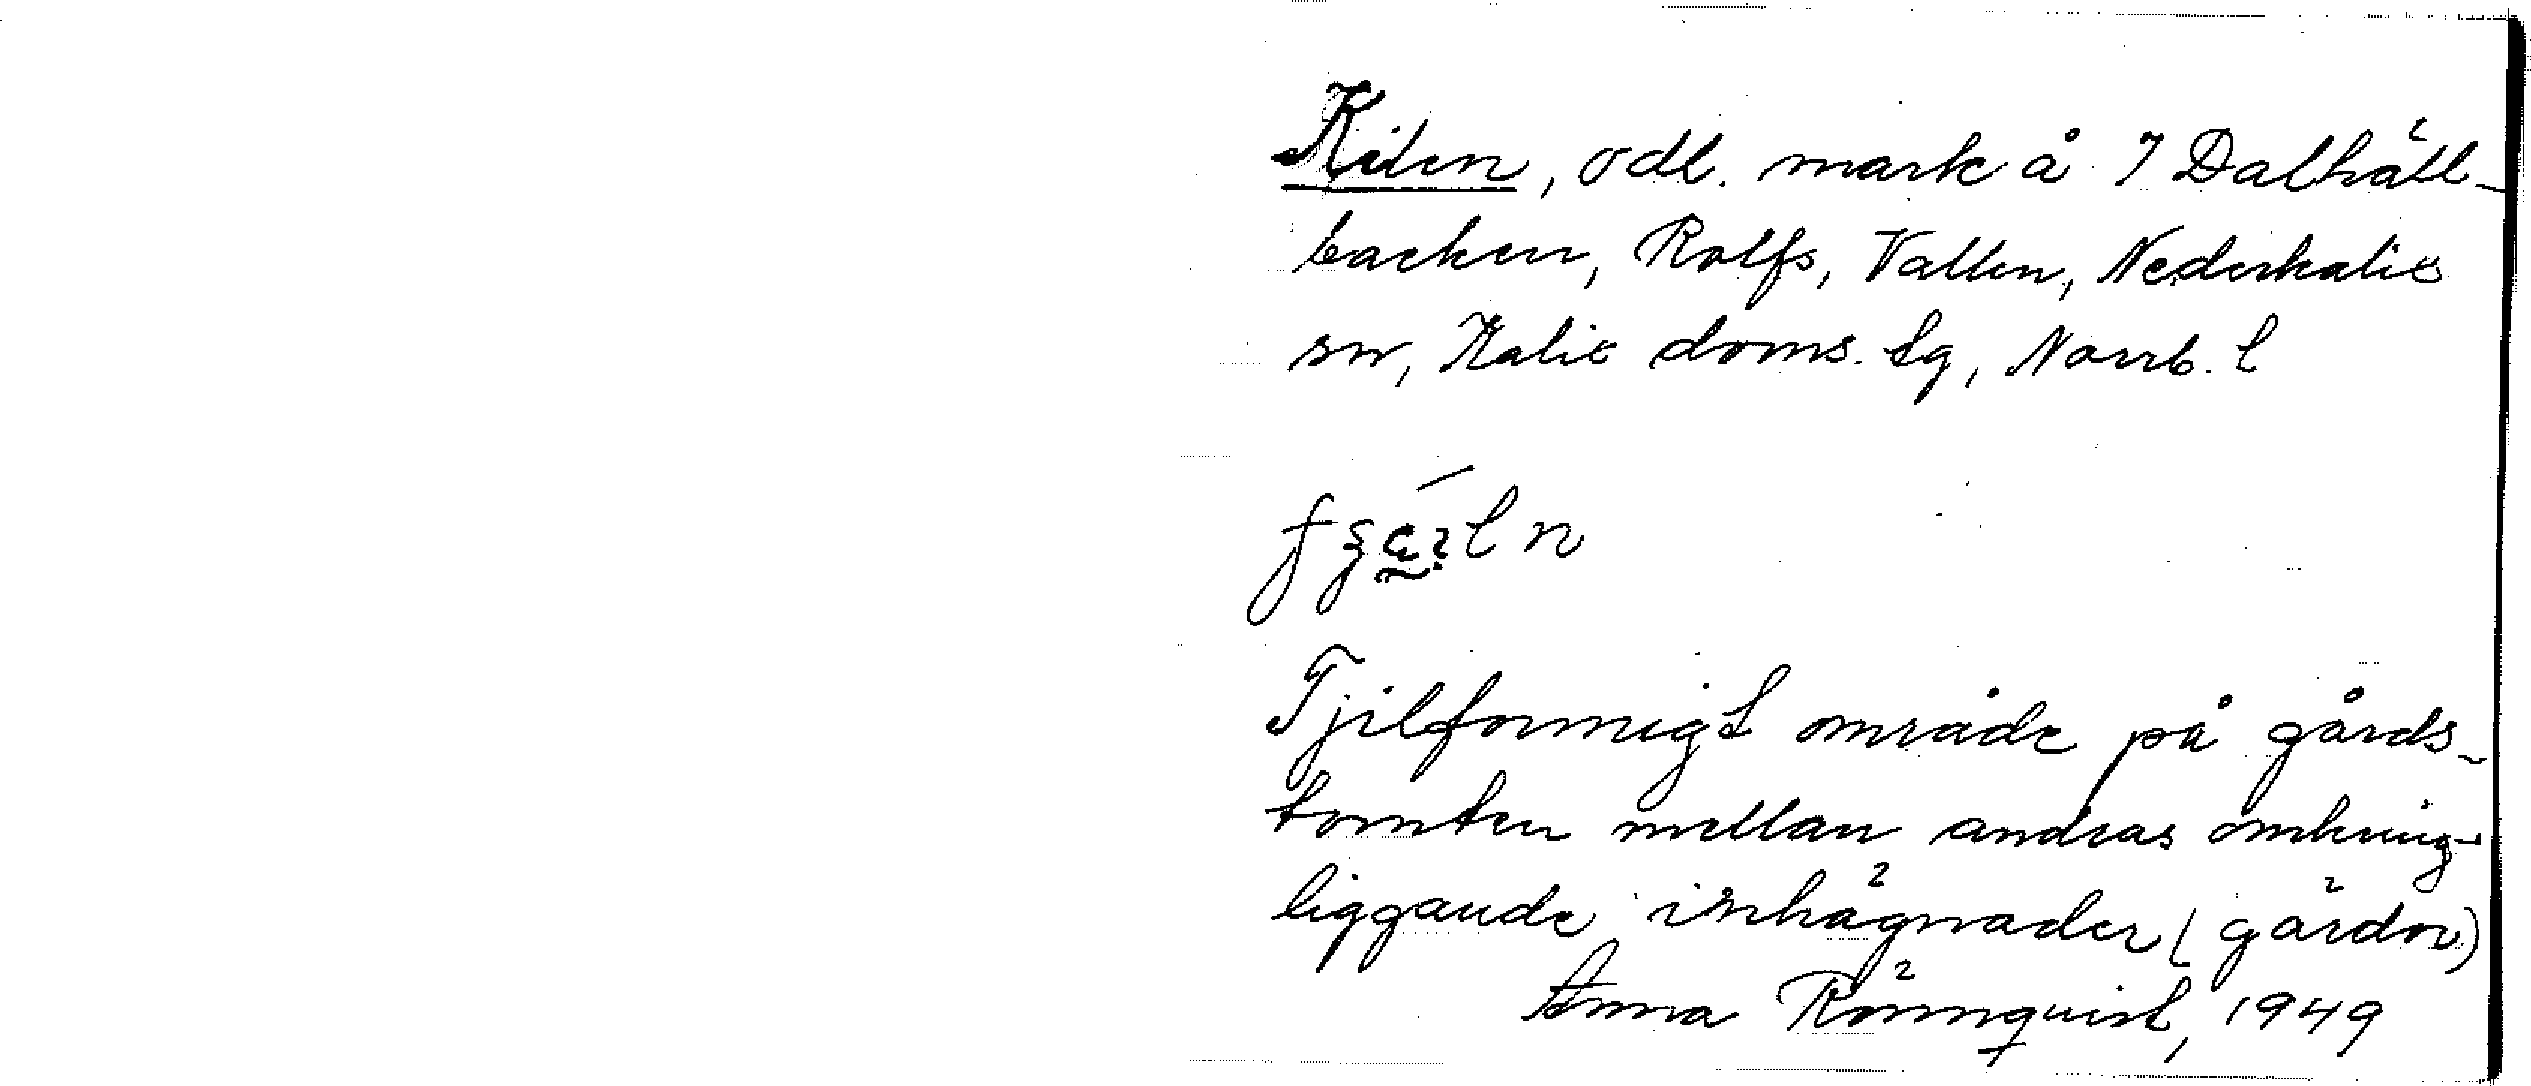 Kilen, odl. mark å 7 Dalhäll-
backen, Rolfs, Vallen, Nederkalix
sn, Kalix doms. lg, Norrb. l
Tjilformigt område på gårds-
tomten mellan andras omkring-
liggande inhägnader (gärdor)
Anna Rönnquist, 1949